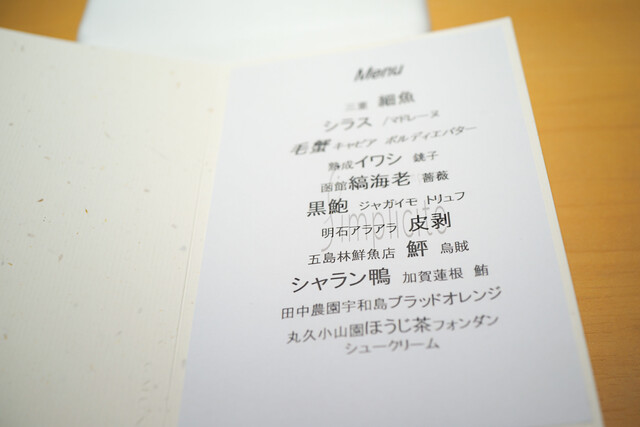 Menu
三重 細魚
シラス / マドレーヌ
毛蟹 キャビア ボルディエバター
熟成イワシ 銚子
函館縞海老 薔薇
黒鮑 ジャガイモ トリュフ
明石アラアラ 皮剥
Simplicité
五島林鮮魚店 鮃 烏賊
シャラン鴨 加賀蓮根 鮪
田中農園宇和島ブラッドオレンジ
丸久小山園ほうじ茶フォンダン
シュークリーム